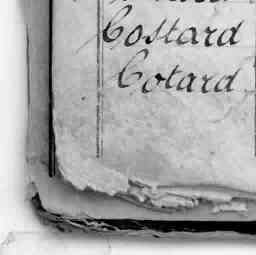 Costard
Cotard